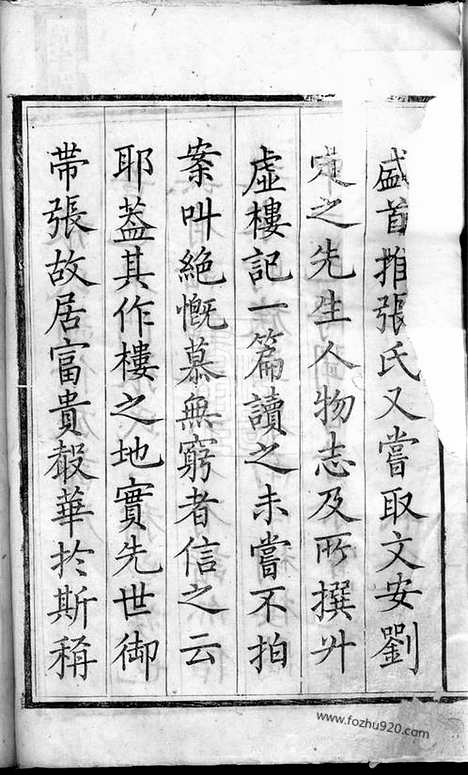 盛首推張氏又嘗取文安劉
定之先生人物志及所撰廾
虛樓記一篇讀之未嘗不拍
案叫絕慨慕無窮者信之云
耶蓋其作樓之地實先世御
帶張故居富貴縠華扵斯稱
www.fozhu920.com